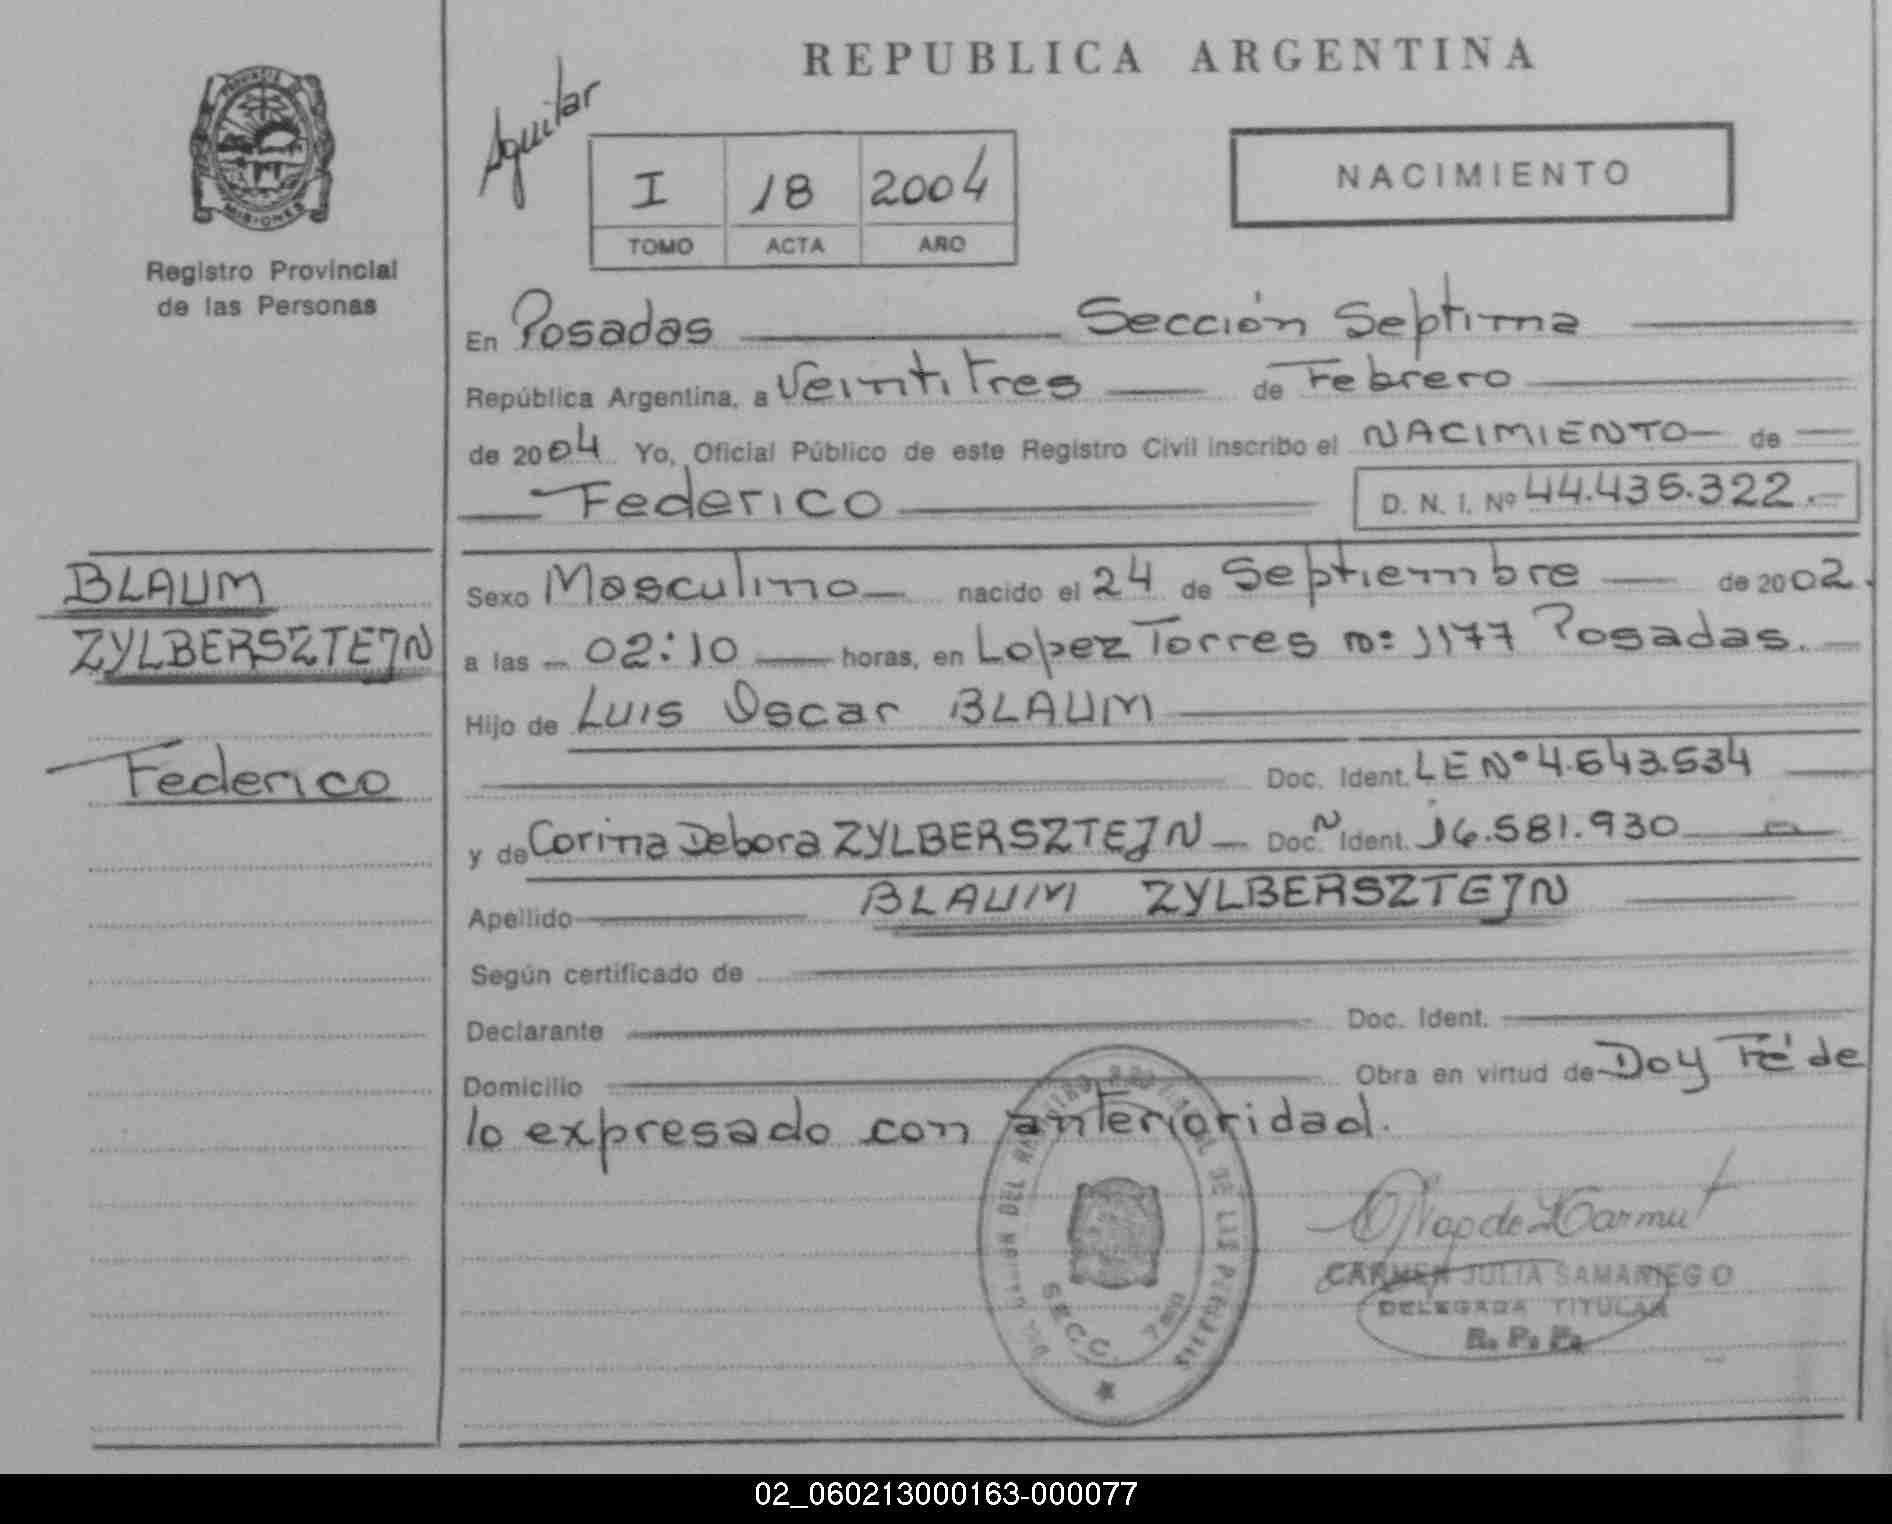 REPUBLICA ARGENTINA
Aguilar
I 18 2004
TOMO ACTA AÑO
NACIMIENTO
MISIONES
Registro Provincial
de las Personas
En Posadas Sección Septima
República Argentina, a Veintitres de Febrero
de 2004 Yo, Oficial Público de este Registro Civil inscribo el NACIMIENTO de
Federico D. N. I. Nº 44.435.322.
BLAUM
ZYLBERSZTEJN
Federico
Sexo Masculino nacido el 24 de Septiembre de 2002.
a las 02:10 horas, en Lopez Torres nº 1177 Posadas.
Hijo de Luis Oscar BLAUM
Doc. Ident. LE Nº 4.643.534
y de Corina Debora ZYLBERSZTEJN Doc. Ident. 16.581.930
Apellido BLAUM ZYLBERSZTEJN
Según certificado de
Declarante Doc. Ident.
Domicilio Obra en virtud de Doy Fé de
lo expresado con anterioridad.
SECC. 7
CARMEN JULIA SAMANIEGO
DELEGADA TITULAR
R. P. P.
02_060213000163-000077